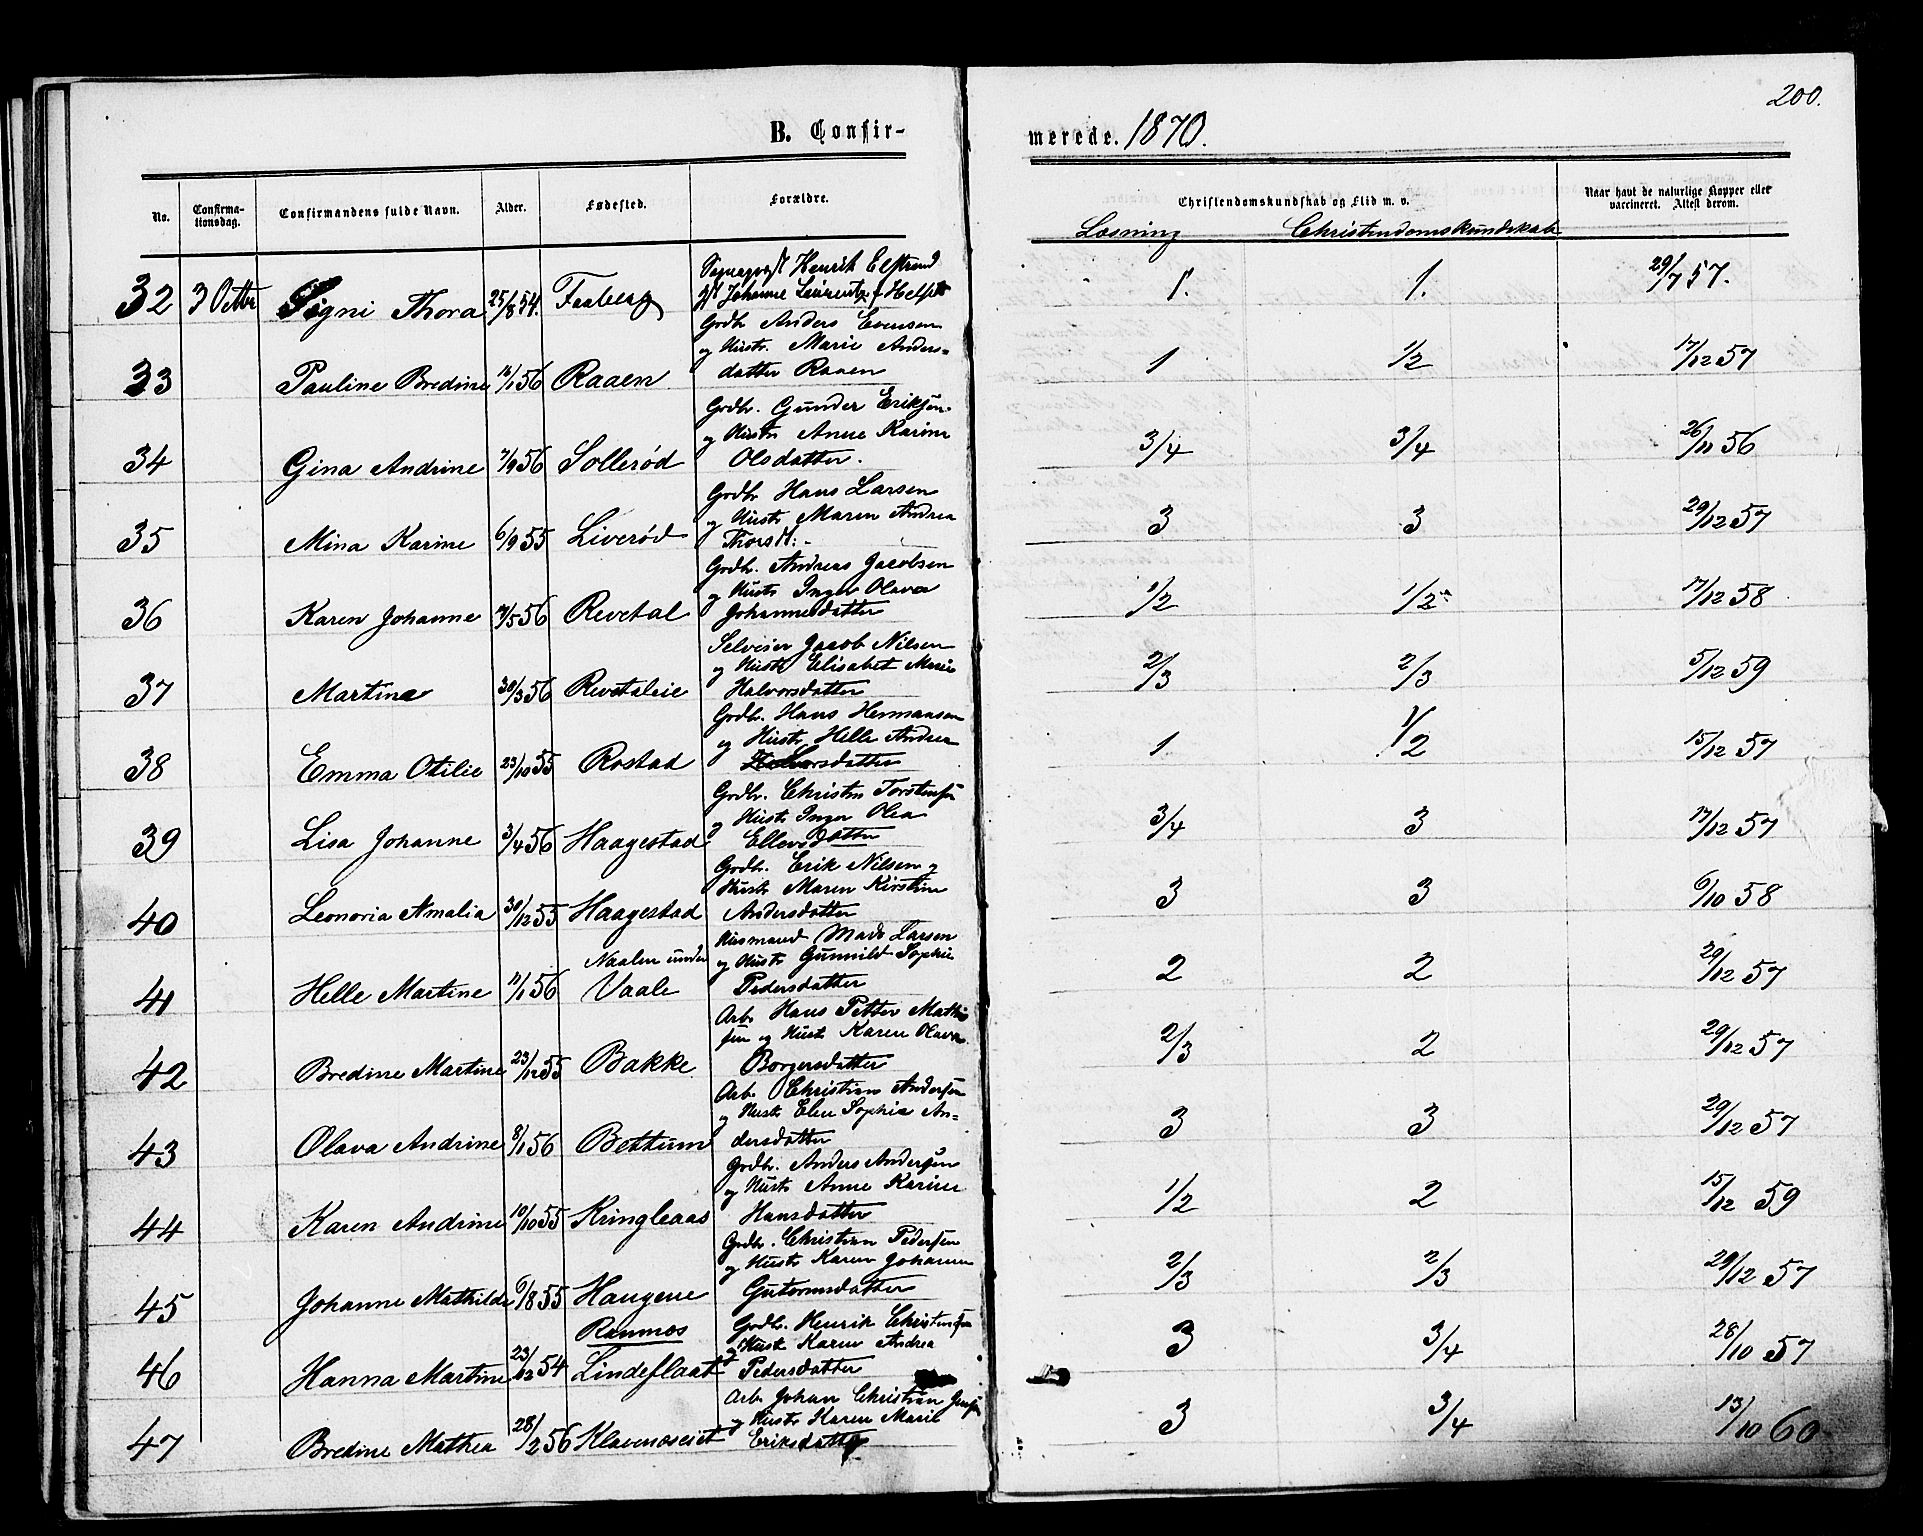 200.
B. Confir-
merede. 1870.
No.
Confirma-
tionsdag.
Confirmandens fulde Navn.
Alder.
Fødested.
Forældre.
Christendomskundskab og Flid m. v.
Læsning
Christendomskundskab
Naar havt de naturlige Kopper eller
vaccineret. Attest derom.
32 3 Octbr Signi Thora 25/8 54. Faaberg
Henrik Elstrand
Johanne Helset
1. 1. 29/7 57.
33 Pauline Bredine 16/1 56 Raaen
Grdbr Anders Evensen
og Hustr. Marie Anders-
datter Raaen
1 1/2 17/12 57
34 Gina Andrine 7/9 56 Sollerød
Grdbr. Gunder Eriksen
og Hustr Anne Karine
Olsdatter.
3/4 3/4 26/11 56
35 Mina Karine 6/9 55 Liverød
Grdbr Hans Larsen
og Hustr Maren Andrea
Thorsdt:-
3 3 29/12 57
36 Karen Johanne 7/5 56 Revetal
Grdbr. Andreas Jacobsen
og Hustr Inger Olava
Johannesdatter
1/2 1/2 17/12 58
37 Martine 30/3 56 Revetaleie
Selveier Jacob Nilsen
og Hustr Elisabet Marie
Halvorsdatter
2/3 2/3 5/12 59
38 Emma Otilie 23/10 55 Rostad
Grdbr. Hans Hermansen
og Hustr. Helle Andrea
1 1/2 15/12 57
39 Lisa Johanne 3/4 56 Haagestad
Grdbr. Christen Torstensen
og Hustr Inger Olea
Ellevsdatter
3/4 3 17/12 57
40 Leonoria Amalia 30/12 55 Haagestad
Grdbr. Erik Nilsen og
Hustr Maren Kirstine
Andersdatter
3 3 6/10 58
41 Helle Martine 11/1 56 Naalen under
Vaale
Husmand Mads Larsen
og Hustr Gunnild Sophie
Pedersdatter
2 2 29/12 57
42 Bredine Martine 23/12 55 Bakke
Arb. Hans Petter Mathi
sen og Hustr Karen Olava
Borgersdatter
2/3 2 29/12 57
43 Olava Andrine 8/1 56 Bettum
Arb. Christian Andersen
og Hustr Elen Sophie An-
dersdatter
3 3 29/12 57
44 Karen Andrine 10/10 55 Kringleaas
Grdbr. Anders Andersen
og Hustr Anne Karine
Hansdatter
1/2 2 15/12 59
45 Johanne Mathilde 6/8 55 Haugene
Grdbr. Christian Pedersen
og Hustr Karen Johanne
Gutormsdatter
2/3 2/3 29/12 57
46 Hanna Martine 23/12 54 Ramnæs
Lindeflaat
Grdbr. Henrik Christensen
og Hustr Karen Andrea
Pedersdatter
3 3/4 28/10 57
47 Bredine Mathea 28/2 56 Klavenæseiet
Arb Johan Christian Jensen
og Hustr Karen Marie
Eriksdatter
3 3/4 13/10 60